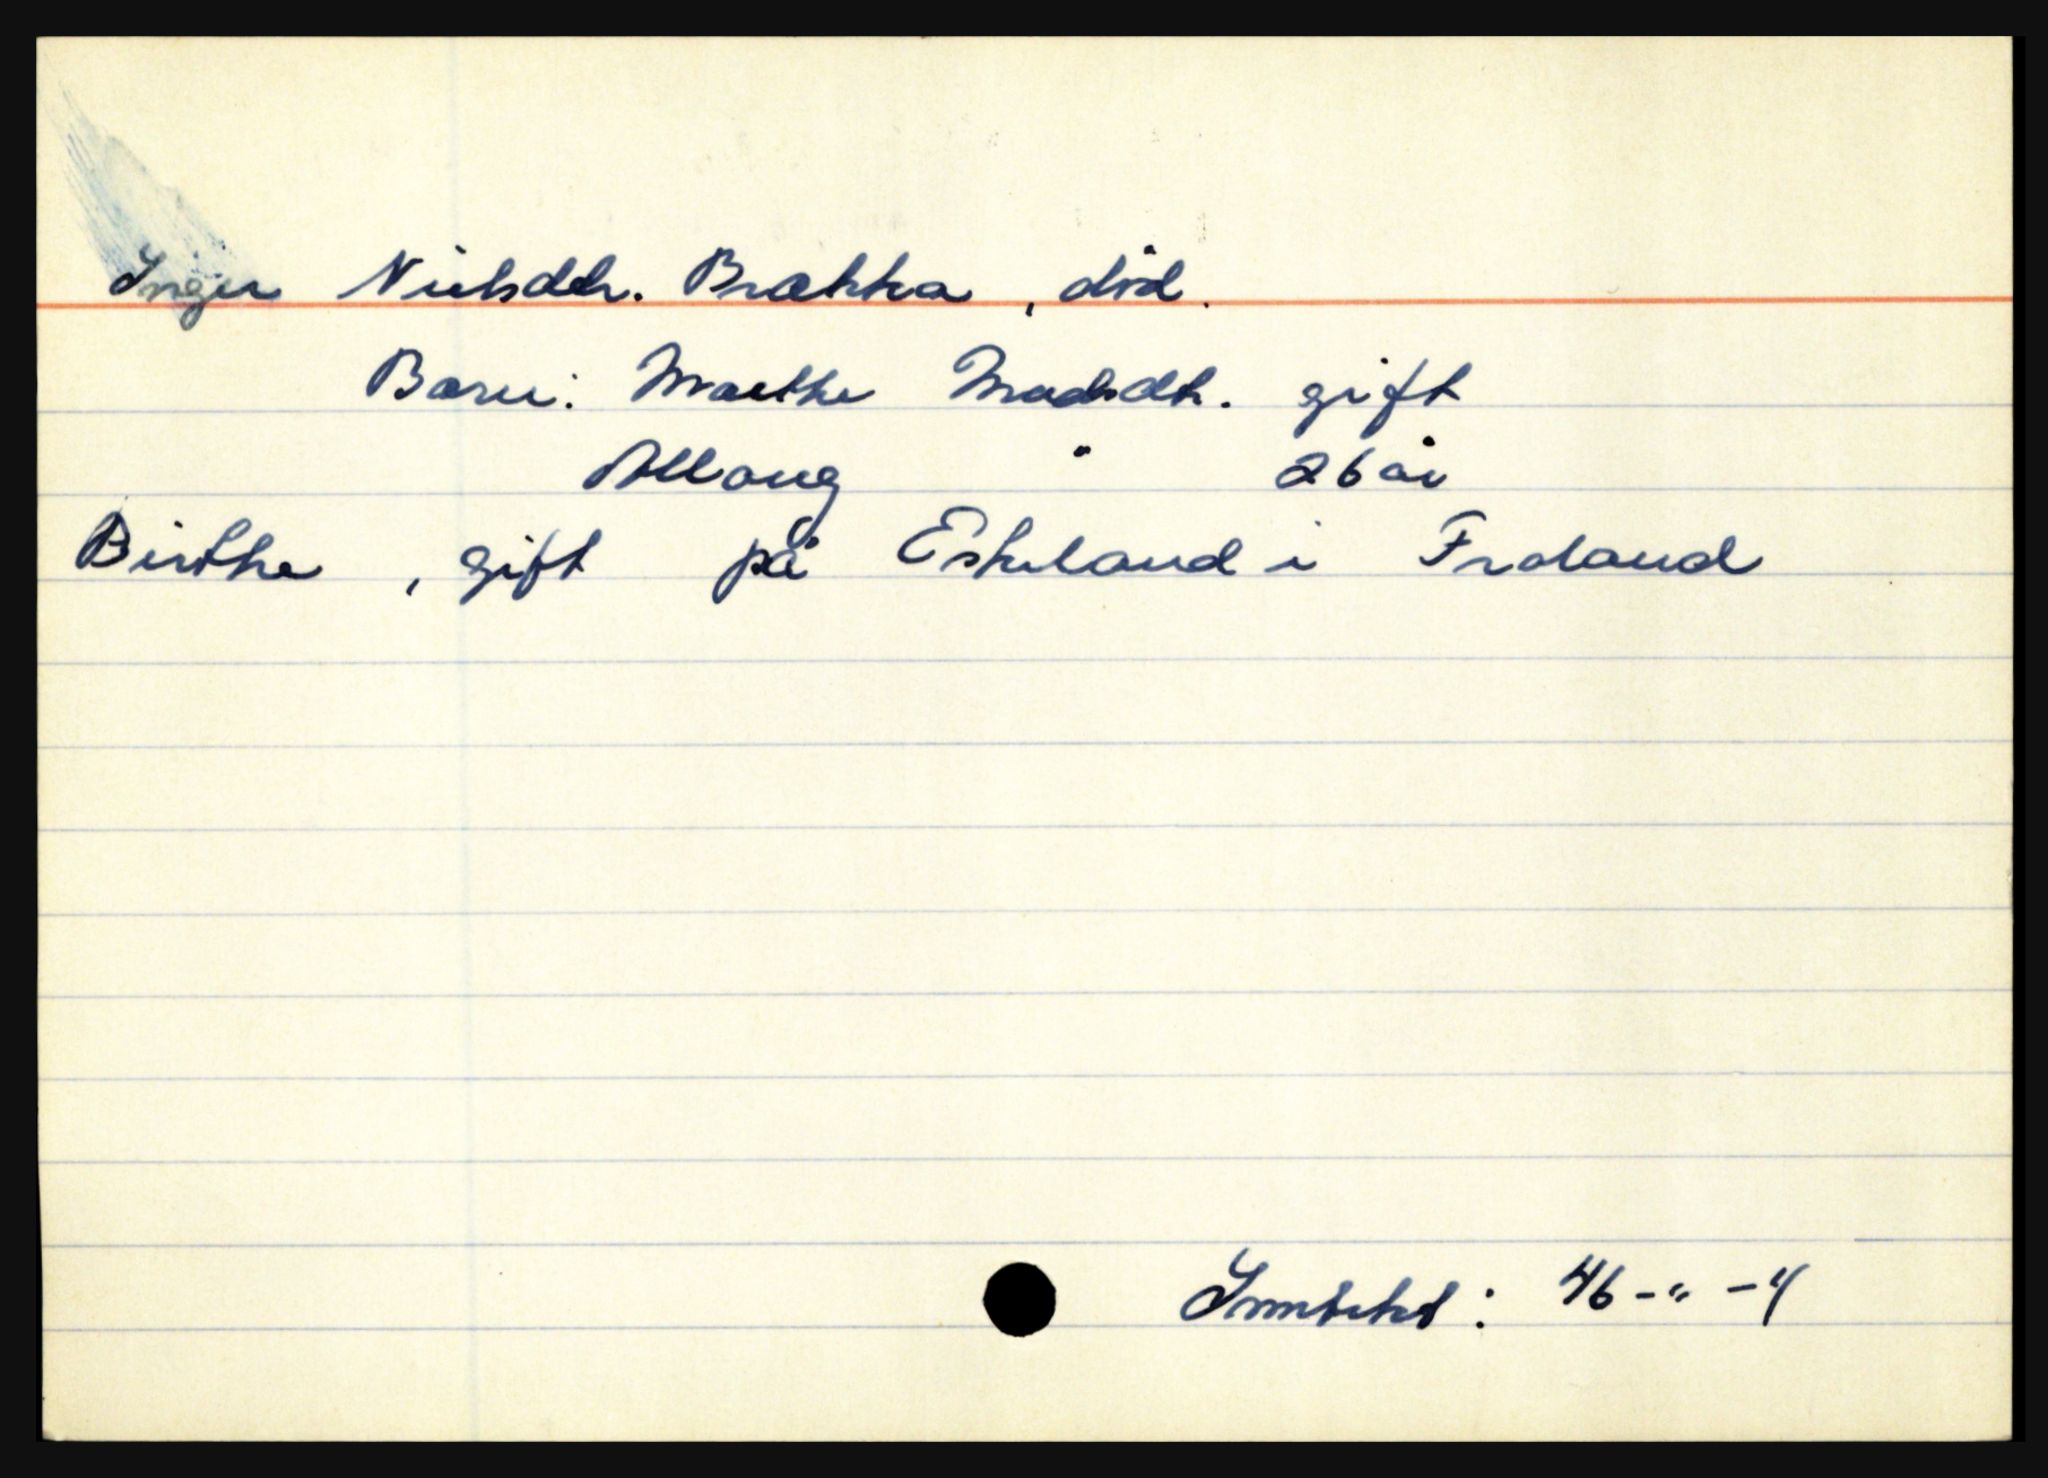 Inger Nielsdtr. Brækka, død.
Barn: Marthe Madsdtr. gift
Alloug " 26 år
Birthe, gift på Eskeland i Froland
Inntekt: 46-"-4